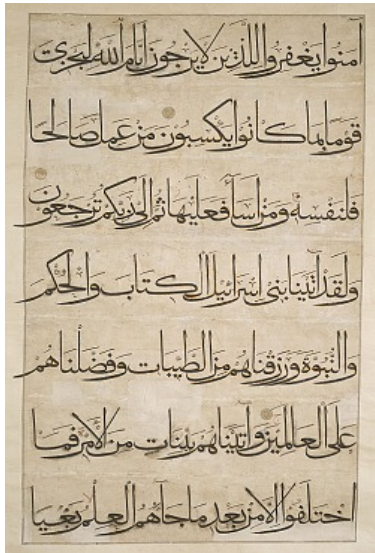 آمنوا يغفروا للذين لا يرجون أيام الله ليجزي
قوما بما كانوا يكسبون من عمل صالحا
فلنفسه ومن أسآء فعليها ثم إلى ربكم ترجعون
ولقد آتينا بني إسرائيل الكتاب والحكم
والنبوة ورزقناهم من الطيبات وفضلناهم
على العالمين وآتيناهم بينات من الأمر فما
اختلفوا إلا من بعد ما جاءهم العلم بغيا